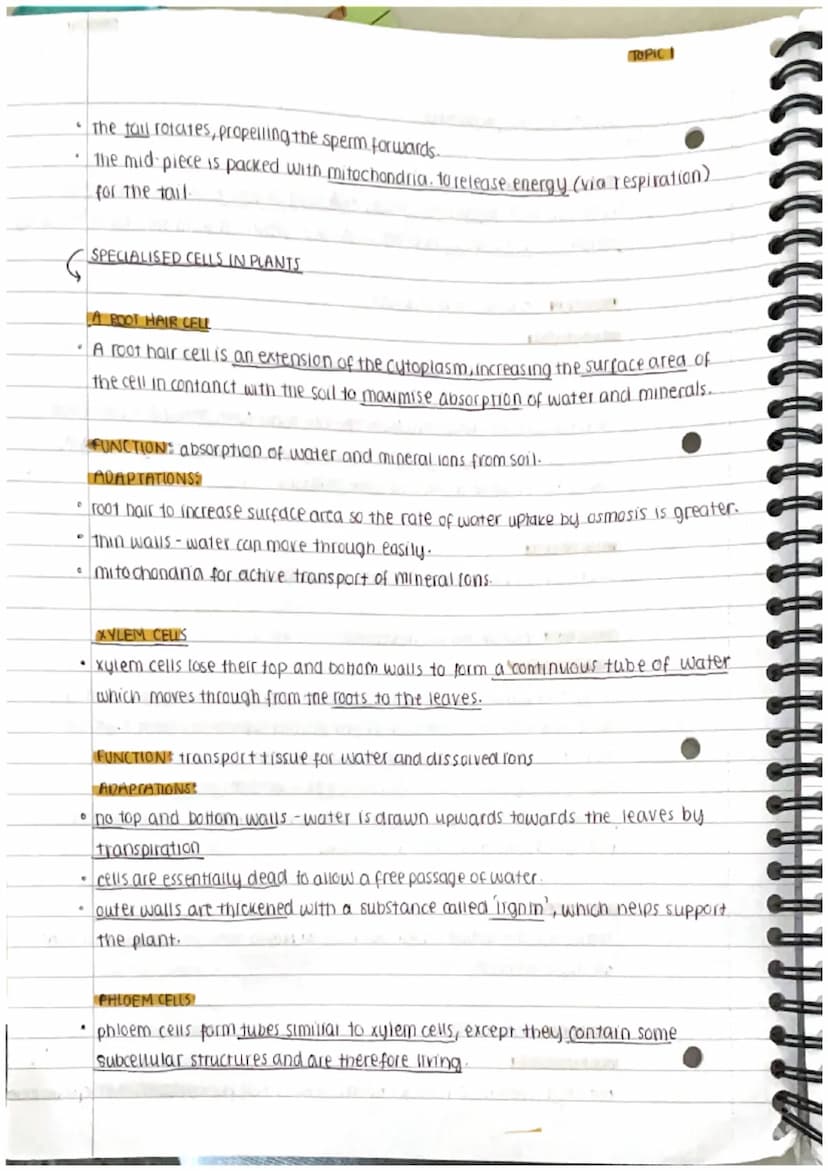 TOPIC 1
• the tail rotates, propelling the sperm forwards.
• the mid-piece is packed with mitochondria. to release energy (via respiration)
for the tail.
SPECIALISED CELLS IN PLANTS
A ROOT HAIR CELL
• A root hair cell is an extension of the cytoplasm, increasing the surface area of
the cell in contanct with the soil to maximise absorption of water and minerals.
FUNCTION: absorption of water and mineral ions from soil.
ADAPTATIONS:
• root hair to increase surface area so the rate of water uptake by osmosis is greater.
• thin walls - water can move through easily.
• mitochondria for active transport of mineral ions.
XYLEM CELLS
• xylem cells lose their top and bottom walls to form a continuous tube of water
which moves through from the roots to the leaves.
FUNCTION: transport tissue for water and dissolved ions
ADAPTATIONS:
• no top and bottom walls - water is drawn upwards towards the leaves by
transpiration
• cells are essentially dead to allow a free passage of water.
• outer walls are thickened with a substance called 'lignin', which helps support
the plant.
PHLOEM CELLS
• phloem cells form tubes simillar to xylem cells, except they contain some
subcellular structures and are therefore living.